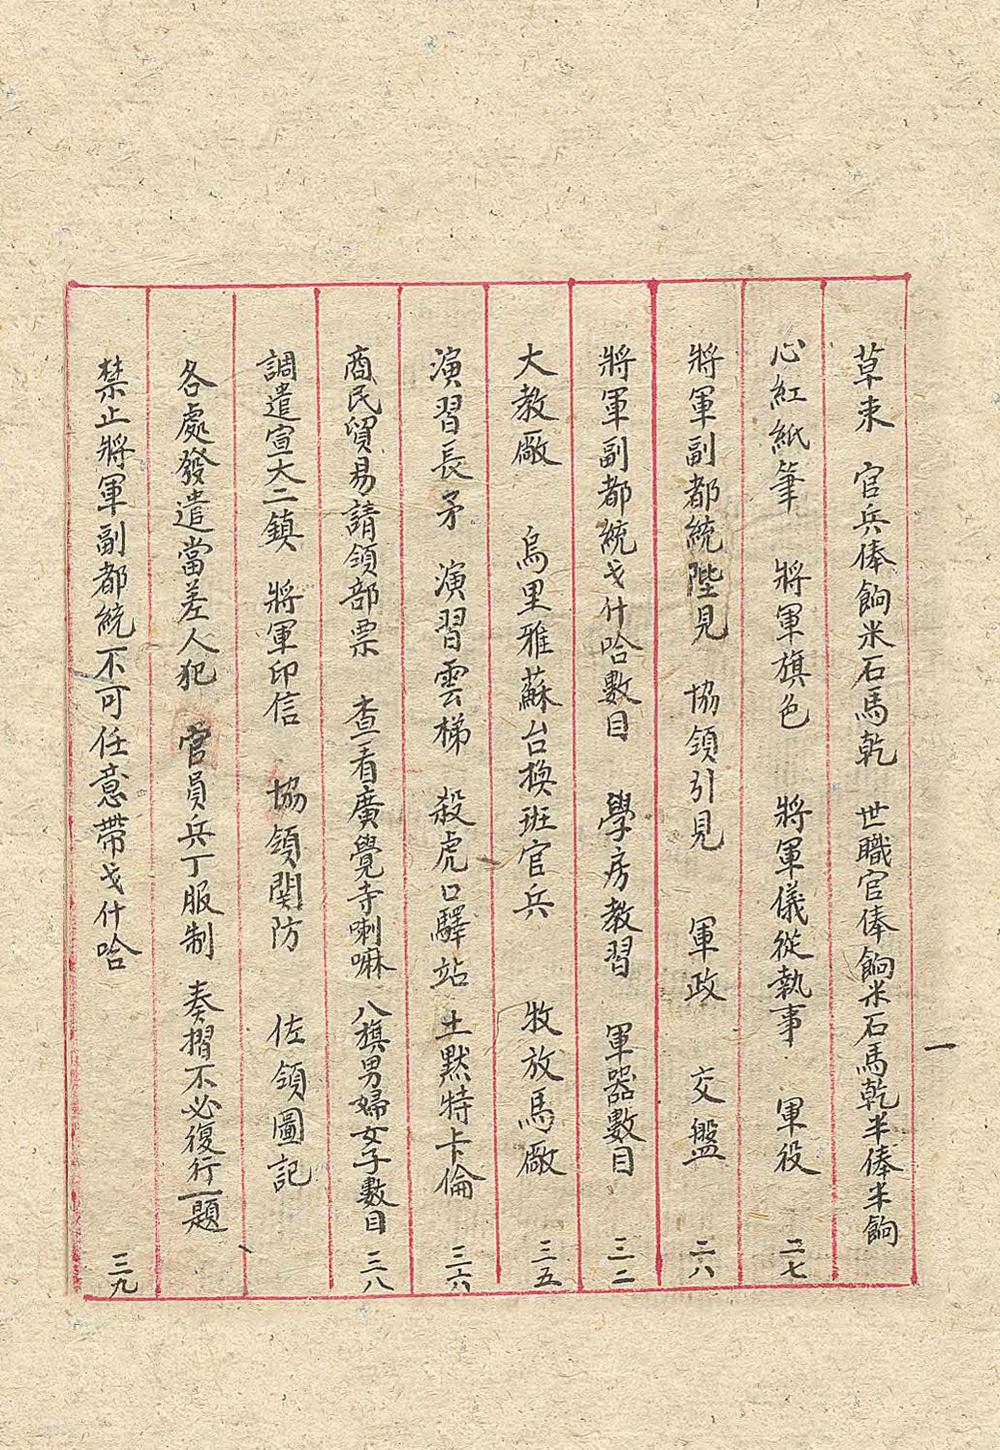 草束　官兵俸餉米石馬乾　世職官俸餉米石馬乾半俸半餉
心紅紙筆　將軍旗色　將軍儀從執事　軍役　二七
將軍副都統陛見　協領引見　軍政　交盤　二八
將軍副都統戈什哈數目　學房教習　軍器數目　三二
大教廠　烏里雅蘇台換班官兵　牧放馬廠　三五
演習長矛　演習雲梯　殺虎口驛站　土默特卡倫　三六
商民貿易請領部票　查看廣覺寺喇嘛　八旗男婦女子數目　三八
調遣宣大二鎮　將軍印信　協領関防　佐領圖記
各處發遣當差人犯　官員兵丁服制　奏摺不必復行一題
禁止將軍副都統不可任意帶戈什哈　三九
一